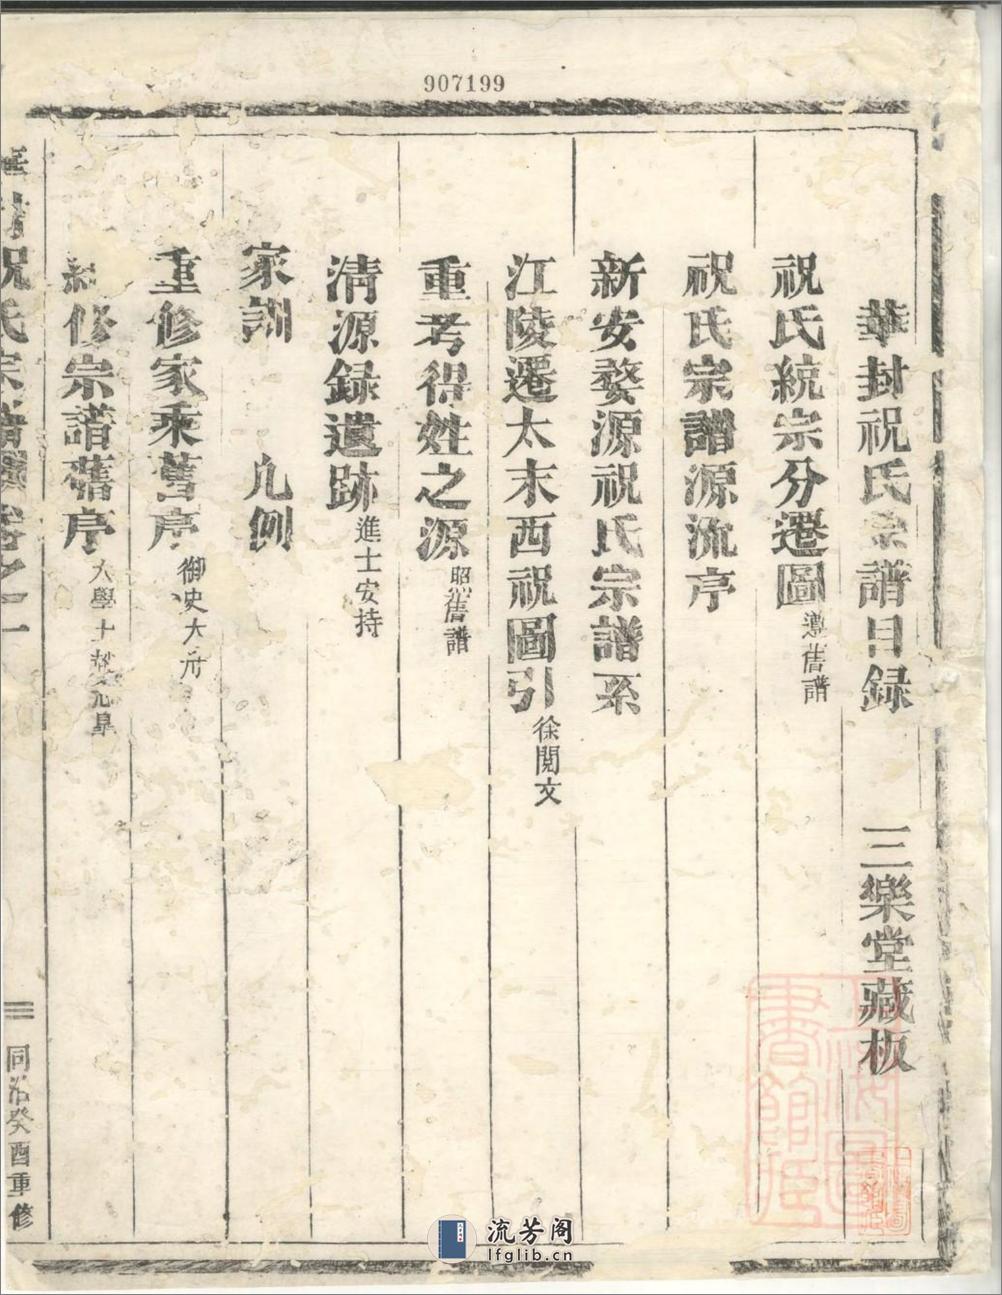 907199
華封祝氏宗譜目録 三樂堂藏板
祝氏統宗分遷圖 遵舊譜
祝氏宗譜源流序
新安婺源祝氏宗譜系
江陵遷太末西祝圖引 徐閱文
重考得姓之源 昭 舊譜
清源録遺跡 進士安持
家訓 凡例
重修家乘舊序 御史大
修宗譜舊序 大學士
祝氏宗譜 卷之一 同治癸酉重修
上海圖書館藏
流芳阁
lfglib.cn